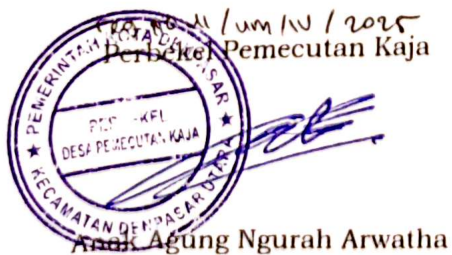 11/um/IV/2025
Perbekel Pemecutan Kaja
PEMERINTAH KOTA DENPASAR
PERBEKEL
DESA PEMECUTAN KAJA
KECAMATAN DENPASAR UTARA
Anak Agung Ngurah Arwatha